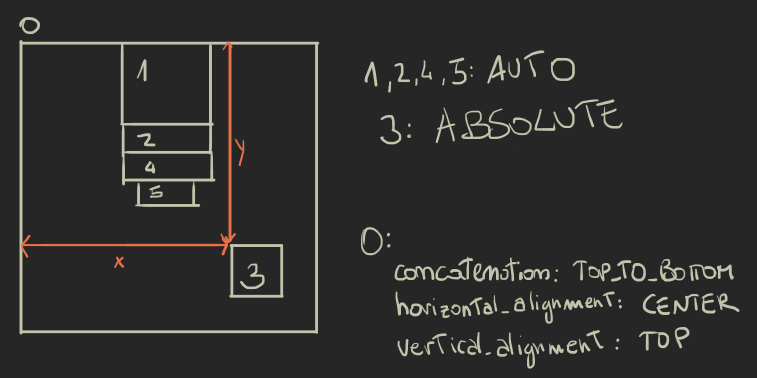 0
1
2
4
5
y
x
3
1,2,4,5: AUTO
3: ABSOLUTE
0:
concatenation: TOP_TO_BOTTOM
horizontal_alignment: CENTER
vertical_alignment: TOP